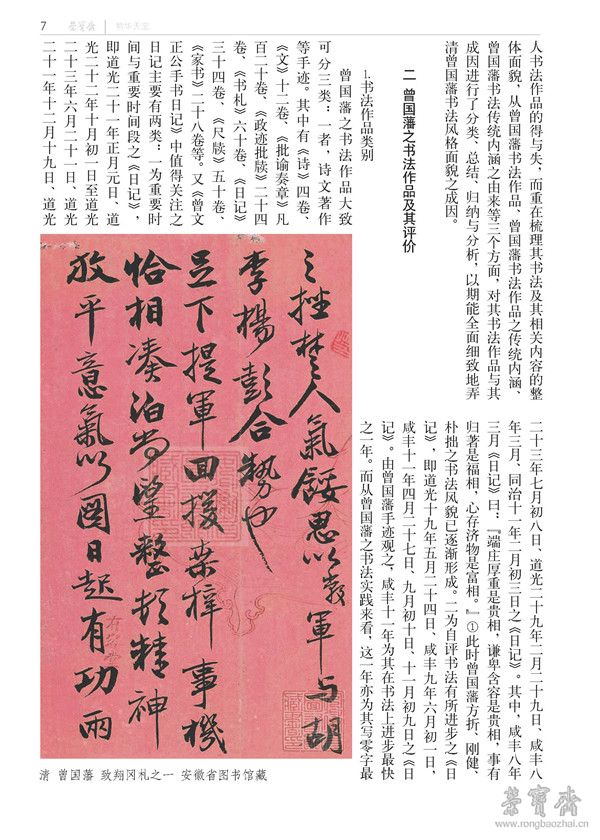 7 荣宝斋 | 艺华天宝
人书法作品的得与失，而重在梳理其书法及其相关内容的整
体面貌，从曾国藩书法作品、曾国藩书法作品之传统内涵、
曾国藩书法传统内涵之由来等三个方面，对其书法作品与其
成因进行了分类、总结、归纳与分析，以期能全面细致地弄
清曾国藩书法风格面貌之成因。
二 曾国藩之书法作品及其评价
1.书法作品类别
曾国藩之书法作品大致
可分三类：一者，诗文著作
等手迹。其中有《诗》四卷、
《文》十二卷、《批谕奏章》凡
百二十卷、《政迹批牍》二十四
卷、《书札》六十卷、《日记》
三十四卷、《尺牍》五十卷、
《家书》二十八卷等。又《曾文
正公手书日记》中值得关注之
日记主要有两类：一为重要时
间与重要时间段之《日记》，
即道光二十一年正月元日、道
光二十二年十月初一日至道光
二十三年六月二十一日、道光
二十一年十二月十九日、道光
二十三年七月初八日、道光二十九年二月二十九日、咸丰八
年三月、同治十一年二月初三日之《日记》。其中，咸丰八年
三月《日记》曰：『端庄厚重是贵相，谦卑含容是贵相，事有
归著是福相，心存济物是富相。』①此时曾国藩方折、刚健、
朴拙之书法风貌已逐渐形成。二为自评书法有所进步之《日
记》，即道光十九年五月二十四日、咸丰九年六月初一日、
咸丰十一年四月二十七日、九月初十日、十一月初九日之《日
记》。由曾国藩手迹观之，咸丰十一年为其在书法上进步最快
之一年。而从曾国藩之书法实践来看，这一年亦为其写零字最
之挫楚人氣餒思以 軍与胡
李楊彭合勢也
足下提軍回援桑梓事機
恰相湊泊尚望整頓精神
放平意氣以圖日起有功兩
清 曾国藩 致翔冈札之一 安徽省图书馆藏
荣宝斋
www.rongbaozhai.cn